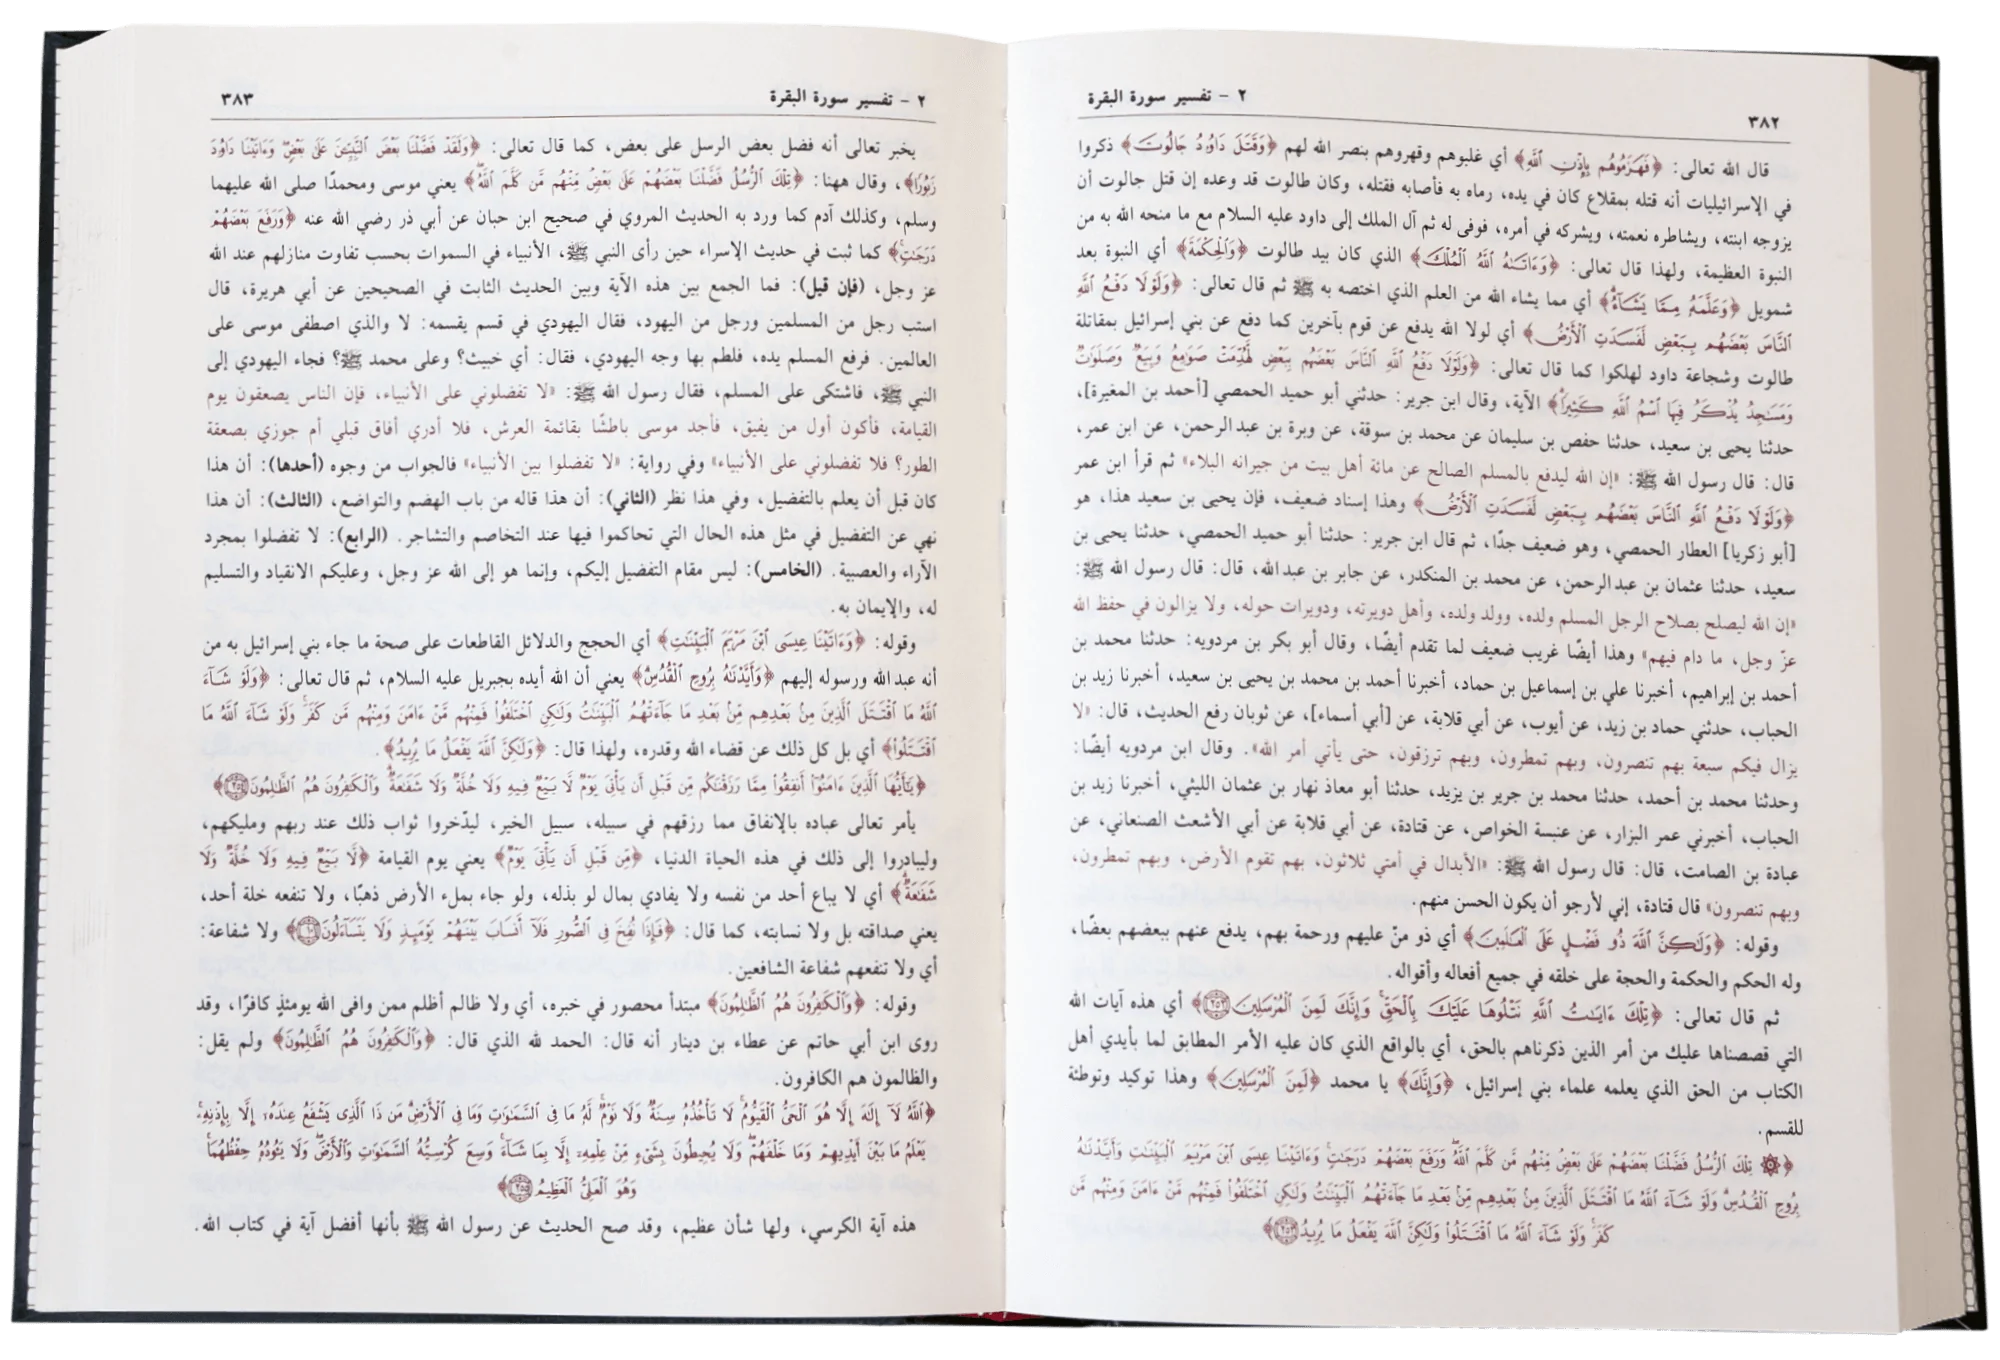 ٣٨٢
٢ - تفسير سورة البقرة
قال الله تعالى: ﴿فَهَزَمُوهُم بِإِذْنِ ٱللَّهِ﴾ أي غلبوهم وقهروهم بنصر الله لهم ﴿وَقَتَلَ دَاوُۥدُ جَالُوتَ﴾ ذكروا
في الإسرائيليات أنه قتله بمقلاع كان في يده، رماه به فأصابه فقتله، وكان طالوت قد وعده إن قتل جالوت أن
يزوجه ابنته، ويشاطره نعمته، ويشركه في أمره، فوفى له ثم آل الملك إلى داود عليه السلام مع ما منحه الله به من
النبوة العظيمة، ولهذا قال تعالى: ﴿وَءَاتَىٰهُ ٱللَّهُ ٱلْمُلْكَ﴾ الذي كان بيد طالوت ﴿وَٱلْحِكْمَةَ﴾ أي النبوة بعد
شمويل ﴿وَعَلَّمَهُۥ مِمَّا يَشَآءُ﴾ أي مما يشاء الله من العلم الذي اختصه به ﷺ ثم قال تعالى: ﴿وَلَوْلَا دَفْعُ ٱللَّهِ
ٱلنَّاسَ بَعْضَهُم بِبَعْضٍ لَّفَسَدَتِ ٱلْأَرْضُ﴾ أي لولا الله يدفع عن قوم بآخرين كما دفع عن بني إسرائيل بمقاتلة
طالوت وشجاعة داود لهلكوا كما قال تعالى: ﴿وَلَوْلَا دَفْعُ ٱللَّهِ ٱلنَّاسَ بَعْضَهُم بِبَعْضٍ لَّهُدِّمَتْ صَوَٰمِعُ وَبِيَعٌ وَصَلَوَٰتٌ
وَمَسَٰجِدُ يُذْكَرُ فِيهَا ٱسْمُ ٱللَّهِ كَثِيرًا﴾ الآية، وقال ابن جرير: حدثني أبو حميد الحمصي [أحمد بن المغيرة]،
حدثنا يحيى بن سعيد، حدثنا حفص بن سليمان عن محمد بن سوقة، عن وبرة بن عبد الرحمن، عن ابن عمر،
قال: قال رسول الله ﷺ: «إن الله ليدفع بالمسلم الصالح عن مائة أهل بيت من جيرانه البلاء» ثم قرأ ابن عمر
﴿وَلَوْلَا دَفْعُ ٱللَّهِ ٱلنَّاسَ بَعْضَهُم بِبَعْضٍ لَّفَسَدَتِ ٱلْأَرْضُ﴾ وهذا إسناد ضعيف، فإن يحيى بن سعيد هذا، هو
[أبو زكريا] العطار الحمصي، وهو ضعيف جدًا، ثم قال ابن جرير: حدثنا أبو حميد الحمصي، حدثنا يحيى بن
سعيد، حدثنا عثمان بن عبد الرحمن، عن محمد بن المنكدر، عن جابر بن عبد الله، قال: قال رسول الله ﷺ:
«إن الله ليصلح بصلاح الرجل المسلم ولده، وولد ولده، وأهل دويرته، ودويرات حوله، ولا يزالون في حفظ الله
عزّ وجل، ما دام فيهم» وهذا أيضًا غريب ضعيف لما تقدم أيضًا، وقال أبو بكر بن مردويه: حدثنا محمد بن
أحمد بن إبراهيم، أخبرنا علي بن إسماعيل بن حماد، أخبرنا أحمد بن محمد بن يحيى بن سعيد، أخبرنا زيد بن
الحباب، حدثني حماد بن زيد، عن أيوب، عن أبي قلابة، عن [أبي أسماء]، عن ثوبان رفع الحديث، قال: «لا
يزال فيكم سبعة بهم تنصرون، وبهم تمطرون، وبهم ترزقون، حتى يأتي أمر الله». وقال ابن مردويه أيضًا:
وحدثنا محمد بن أحمد، حدثنا محمد بن جرير بن يزيد، حدثنا أبو معاذ نهار بن عثمان الليثي، أخبرنا زيد بن
الحباب، أخبرني عمر البزار، عن عنبسة الخواص، عن قتادة، عن أبي قلابة عن أبي الأشعث الصنعاني، عن
عبادة بن الصامت، قال: قال رسول الله ﷺ: «الأبدال في أمتي ثلاثون، بهم تقوم الأرض، وبهم تمطرون،
وبهم تنصرون» قال قتادة، إني لأرجو أن يكون الحسن منهم.
وقوله: ﴿وَلَٰكِنَّ ٱللَّهَ ذُو فَضْلٍ عَلَى ٱلْعَٰلَمِينَ﴾ أي ذو منّ عليهم ورحمة بهم، يدفع عنهم ببعضهم بعضًا،
وله الحكم والحكمة والحجة على خلقه في جميع أفعاله وأقواله.
ثم قال تعالى: ﴿تِلْكَ ءَايَٰتُ ٱللَّهِ نَتْلُوهَا عَلَيْكَ بِٱلْحَقِّ وَإِنَّكَ لَمِنَ ٱلْمُرْسَلِينَ ٢٥٢﴾ أي هذه آيات الله
التي قصصناها عليك من أمر الذين ذكرناهم بالحق، أي بالواقع الذي كان عليه الأمر المطابق لما بأيدي أهل
الكتاب من الحق الذي يعلمه علماء بني إسرائيل، ﴿وَإِنَّكَ﴾ يا محمد ﴿لَمِنَ ٱلْمُرْسَلِينَ﴾ وهذا توكيد وتوطئة
للقسم.
﴿۞ تِلْكَ ٱلرُّسُلُ فَضَّلْنَا بَعْضَهُمْ عَلَىٰ بَعْضٍ مِّنْهُم مَّن كَلَّمَ ٱللَّهُ وَرَفَعَ بَعْضَهُمْ دَرَجَٰتٍ وَءَاتَيْنَا عِيسَى ٱبْنَ مَرْيَمَ ٱلْبَيِّنَٰتِ وَأَيَّدْنَٰهُ
بِرُوحِ ٱلْقُدُسِ وَلَوْ شَآءَ ٱللَّهُ مَا ٱقْتَتَلَ ٱلَّذِينَ مِنۢ بَعْدِهِم مِّنۢ بَعْدِ مَا جَآءَتْهُمُ ٱلْبَيِّنَٰتُ وَلَٰكِنِ ٱخْتَلَفُوا۟ فَمِنْهُم مَّنْ ءَامَنَ وَمِنْهُم مَّن
كَفَرَ وَلَوْ شَآءَ ٱللَّهُ مَا ٱقْتَتَلُوا۟ وَلَٰكِنَّ ٱللَّهَ يَفْعَلُ مَا يُرِيدُ ٢٥٣﴾
٢ - تفسير سورة البقرة
٣٨٣
يخبر تعالى أنه فضل بعض الرسل على بعض، كما قال تعالى: ﴿وَلَقَدْ فَضَّلْنَا بَعْضَ ٱلنَّبِيِّـۧنَ عَلَىٰ بَعْضٍ وَءَاتَيْنَا دَاوُۥدَ
زَبُورًا﴾، وقال ههنا: ﴿تِلْكَ ٱلرُّسُلُ فَضَّلْنَا بَعْضَهُمْ عَلَىٰ بَعْضٍ مِّنْهُم مَّن كَلَّمَ ٱللَّهُ﴾ يعني موسى ومحمدًا صلى الله عليهما
وسلم، وكذلك آدم كما ورد به الحديث المروي في صحيح ابن حبان عن أبي ذر رضي الله عنه ﴿وَرَفَعَ بَعْضَهُمْ
دَرَجَٰتٍ﴾ كما ثبت في حديث الإسراء حين رأى النبي ﷺ، الأنبياء في السموات بحسب تفاوت منازلهم عند الله
عز وجل، (فإن قيل): فما الجمع بين هذه الآية وبين الحديث الثابت في الصحيحين عن أبي هريرة، قال
استب رجل من المسلمين ورجل من اليهود، فقال اليهودي في قسم يقسمه: لا والذي اصطفى موسى على
العالمين. فرفع المسلم يده، فلطم بها وجه اليهودي، فقال: أي خبيث؟ وعلى محمد ﷺ؟ فجاء اليهودي إلى
النبي ﷺ، فاشتكى على المسلم، فقال رسول الله ﷺ: «لا تفضلوني على الأنبياء، فإن الناس يصعقون يوم
القيامة، فأكون أول من يفيق، فأجد موسى باطشًا بقائمة العرش، فلا أدري أفاق قبلي أم جوزي بصعقة
الطور؟ فلا تفضلوني على الأنبياء» وفي رواية: «لا تفضلوا بين الأنبياء» فالجواب من وجوه (أحدها): أن هذا
كان قبل أن يعلم بالتفضيل، وفي هذا نظر (الثاني): أن هذا قاله من باب الهضم والتواضع، (الثالث): أن هذا
نهي عن التفضيل في مثل هذه الحال التي تحاكموا فيها عند التخاصم والتشاجر. (الرابع): لا تفضلوا بمجرد
الآراء والعصبية. (الخامس): ليس مقام التفضيل إليكم، وإنما هو إلى الله عز وجل، وعليكم الانقياد والتسليم
له، والإيمان به.
وقوله: ﴿وَءَاتَيْنَا عِيسَى ٱبْنَ مَرْيَمَ ٱلْبَيِّنَٰتِ﴾ أي الحجج والدلائل القاطعات على صحة ما جاء بني إسرائيل به من
أنه عبد الله ورسوله إليهم ﴿وَأَيَّدْنَٰهُ بِرُوحِ ٱلْقُدُسِ﴾ يعني أن الله أيده بجبريل عليه السلام، ثم قال تعالى: ﴿وَلَوْ شَآءَ
ٱللَّهُ مَا ٱقْتَتَلَ ٱلَّذِينَ مِنۢ بَعْدِهِم مِّنۢ بَعْدِ مَا جَآءَتْهُمُ ٱلْبَيِّنَٰتُ وَلَٰكِنِ ٱخْتَلَفُوا۟ فَمِنْهُم مَّنْ ءَامَنَ وَمِنْهُم مَّن كَفَرَ وَلَوْ شَآءَ ٱللَّهُ مَا
ٱقْتَتَلُوا۟﴾ أي بل كل ذلك عن قضاء الله وقدره، ولهذا قال: ﴿وَلَٰكِنَّ ٱللَّهَ يَفْعَلُ مَا يُرِيدُ﴾.
﴿يَٰٓأَيُّهَا ٱلَّذِينَ ءَامَنُوٓا۟ أَنفِقُوا۟ مِمَّا رَزَقْنَٰكُم مِّن قَبْلِ أَن يَأْتِىَ يَوْمٌ لَّا بَيْعٌ فِيهِ وَلَا خُلَّةٌ وَلَا شَفَٰعَةٌ وَٱلْكَٰفِرُونَ هُمُ ٱلظَّٰلِمُونَ ٢٥٤﴾
يأمر تعالى عباده بالإنفاق مما رزقهم في سبيله، سبيل الخير، ليدّخروا ثواب ذلك عند ربهم ومليكهم،
وليبادروا إلى ذلك في هذه الحياة الدنيا، ﴿مِّن قَبْلِ أَن يَأْتِىَ يَوْمٌ﴾ يعني يوم القيامة ﴿لَّا بَيْعٌ فِيهِ وَلَا خُلَّةٌ وَلَا
شَفَٰعَةٌ﴾ أي لا يباع أحد من نفسه ولا يفادي بمال لو بذله، ولو جاء بملء الأرض ذهبًا، ولا تنفعه خلة أحد،
يعني صداقته بل ولا نسابته، كما قال: ﴿فَإِذَا نُفِخَ فِى ٱلصُّورِ فَلَآ أَنسَابَ بَيْنَهُمْ يَوْمَئِذٍ وَلَا يَتَسَآءَلُونَ ١٠١﴾ ولا شفاعة:
أي ولا تنفعهم شفاعة الشافعين.
وقوله: ﴿وَٱلْكَٰفِرُونَ هُمُ ٱلظَّٰلِمُونَ﴾ مبتدأ محصور في خبره، أي ولا ظالم أظلم ممن وافى الله يومئذٍ كافرًا، وقد
روى ابن أبي حاتم عن عطاء بن دينار أنه قال: الحمد لله الذي قال: ﴿وَٱلْكَٰفِرُونَ هُمُ ٱلظَّٰلِمُونَ﴾ ولم يقل:
والظالمون هم الكافرون.
﴿ٱللَّهُ لَآ إِلَٰهَ إِلَّا هُوَ ٱلْحَىُّ ٱلْقَيُّومُ لَا تَأْخُذُهُۥ سِنَةٌ وَلَا نَوْمٌ لَّهُۥ مَا فِى ٱلسَّمَٰوَٰتِ وَمَا فِى ٱلْأَرْضِ مَن ذَا ٱلَّذِى يَشْفَعُ عِندَهُۥٓ إِلَّا بِإِذْنِهِۦ
يَعْلَمُ مَا بَيْنَ أَيْدِيهِمْ وَمَا خَلْفَهُمْ وَلَا يُحِيطُونَ بِشَىْءٍ مِّنْ عِلْمِهِۦٓ إِلَّا بِمَا شَآءَ وَسِعَ كُرْسِيُّهُ ٱلسَّمَٰوَٰتِ وَٱلْأَرْضَ وَلَا يَـُٔودُهُۥ حِفْظُهُمَا
وَهُوَ ٱلْعَلِىُّ ٱلْعَظِيمُ ٢٥٥﴾
هذه آية الكرسي، ولها شأن عظيم، وقد صح الحديث عن رسول الله ﷺ بأنها أفضل آية في كتاب الله.